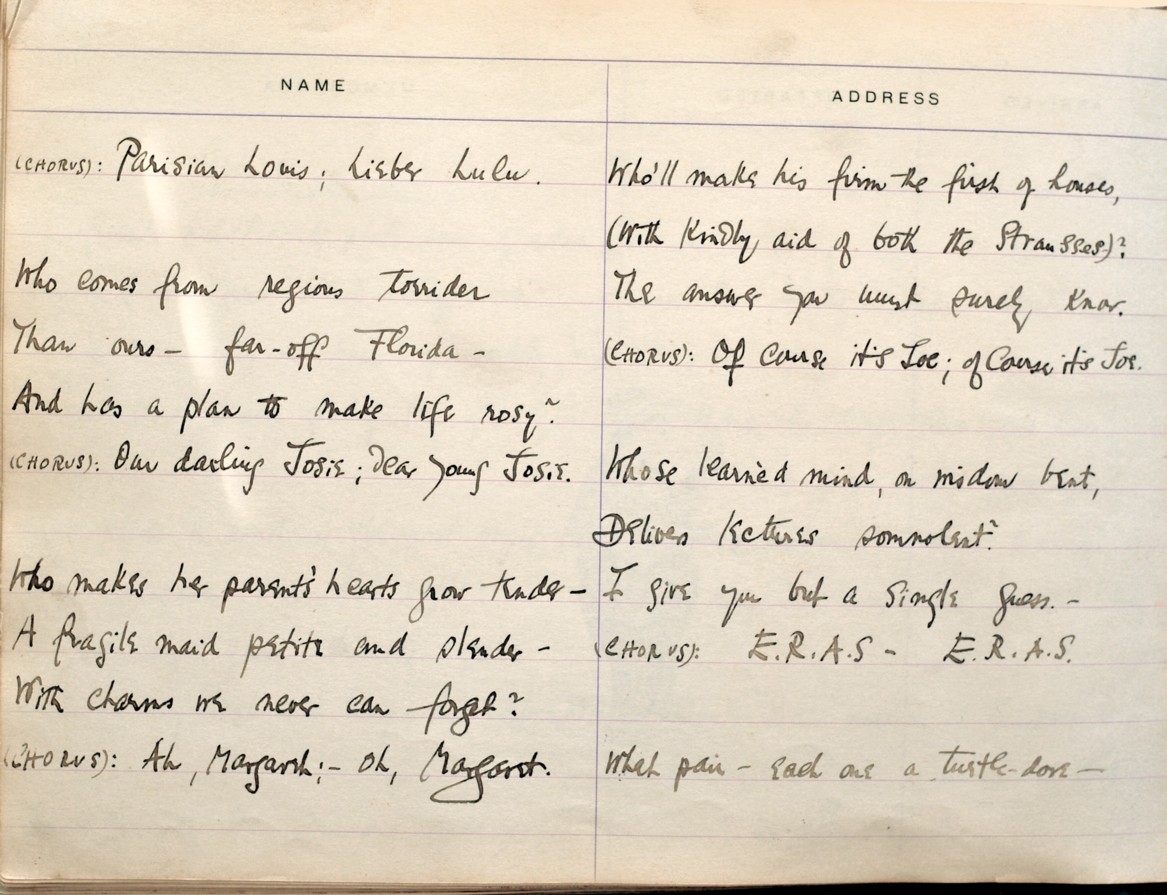 NAME
(CHORUS): Parisian Louis; Lieber Lulu.
Who comes from regions torrider
Than ours – far-off Florida –
And has a plan to make life rosy?
(CHORUS): Our darling Josie; dear young Josie.
Who makes her parent's hearts grow tender –
A fragile maid petite and slender –
With charms we never can forget?
(CHORUS): Ah, Margaret; – Oh, Margaret.
ADDRESS
Who'll make his firm the first of houses,
(With kindly aid of both the Strausses)?
The answer you must surely know.
(CHORUS): Of course it's Joe; of course it's Joe.
Whose learnèd mind, on wisdom bent,
Delivers lectures somnolent?
I give you but a single guess. –
(CHORUS): E.R.A.S – E.R.A.S.
What pair – each one a turtle-dove –